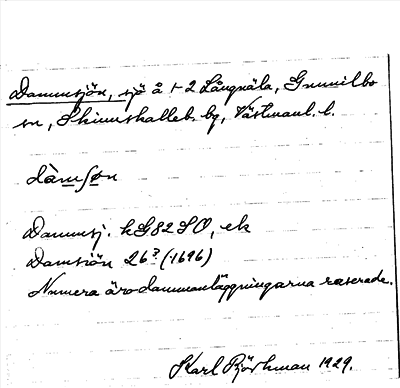 Dammsjön, sjö å 1-2 Långnäla, Gunnilbo
sn, Skinnskatteb. bg, Västmanl. l.
dàmʃøn
Dammsj. kG82SO, ek
Damsiön 26? (1696)
Numera äro dammanläggningarna raserade.
Karl Björkman 1929.